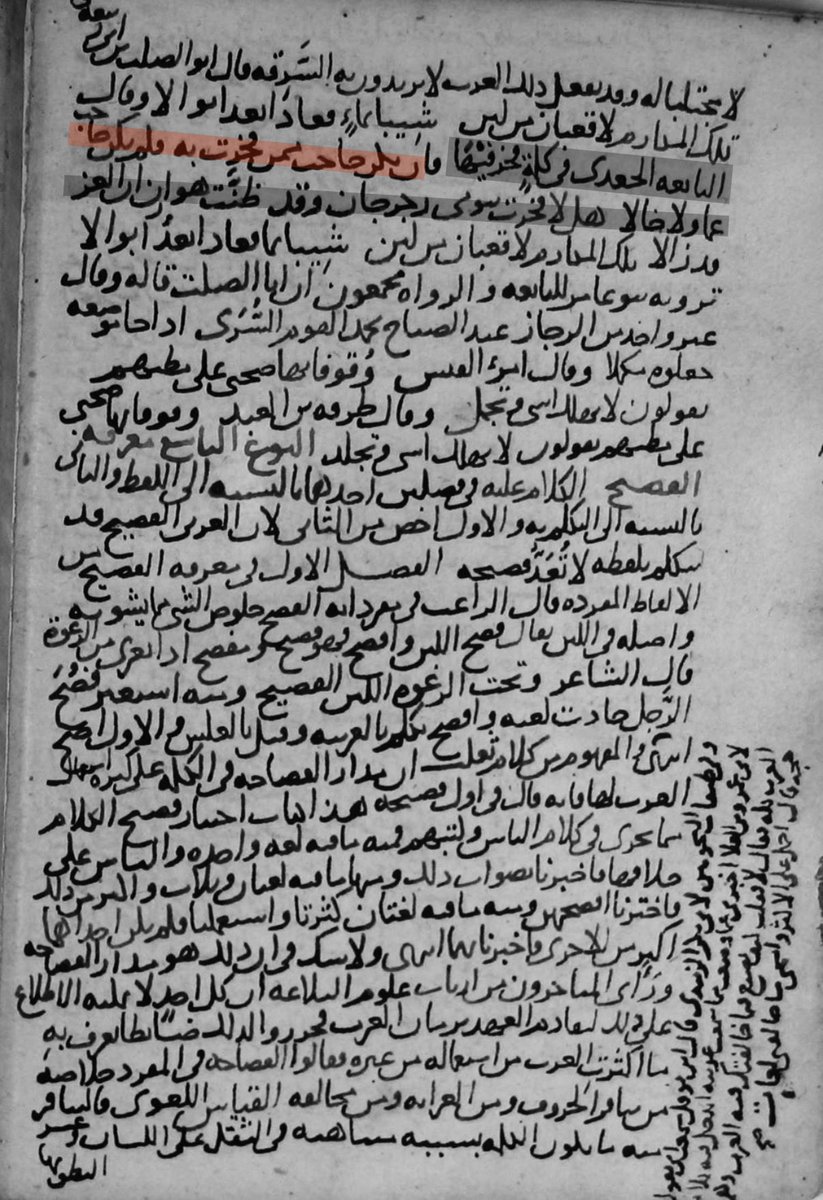 لا مجتلبا له وقد تفعل ذلك العرب لا يريدون به السَّرقه قال ابو الصلت بن ابي ربيعه
تلك المكارم لا قعبان من لبن شيبا بماءٍ فعادَا بعد ابوالا وقال
النابغه الجعدي في كلمةٍ فخر فيْهَا فان يكن حاجب ممن فخرت به فلم يكن حاجب
عما ولا خالا هلا فخرت بيومَى رحرحان وقد ظنَّت هوازن ان العز
قد زالا تلك المكارم لا قعبان من لبن شيبا بما فعادا بعدُ ابوالا
ترويه بنو عامر للنابغه والرواه مجمعون ان ابا الصلت قاله وقال
غير واحد من الرجاز عند الصباح يحمد القوم السُّرَى اذا جا موضعه
جعلوه مثلا وقال امرؤ القيس وُقوفا بها صحبي على مطيهم
يقولون لا تهلك اسى وتجمل وقال طرفه بن العبد وقوفا بها صحبي
على مطيهم يقولون لا تهلك اسى وتجلد النوع التاسع معرفه
الفصيح الكلام عليه في فصلين احدهما بالنسبه الى اللفظ والثاني
بالنسبه الى المتكلم به والاول اخص من الثاني لان العربي الفصيح قد
يتكلم بلفظه لا تُعَدُّ فصيحه الفصل الاول في معرفه الفصيح من
الالفاظ المفرده قال الراغب في مفرداته الفصح خلوص الشي مما يشوبه
واصله في اللبن يقال فصح اللبن وافصح فهو فصيح ومفصح اذا تعرى من الرغوة
قال الشاعر وتحت الرغوه اللبن الفصيح ومنه استعير فصُحَ
الرَّجل جادت لغته وافصح تكلم بالعربيه وقيل بالعكس والاول اصح
انتهى والمفهوم من كلام ثعلب ان مدار الفصاحه في الكلمه على كثره استعمال
العرب لها فانه قال في اول فصيحه هذا كتاب اختيار فصيح الكلام
مما يجري في كلام الناس وكتبهم فمنه ما فيه لغه واحده والناس على
خلافها فاخبرنا بصواب ذلك ومنها ما فيه لغتان وثلاث واكثر من ذلك
فاخترنا افصحهن ومنه ما فيه لغتان كثرتا واستعملتا فلم يكن احداهما
اكثر من الاخرى فاخبرنا بهما انتهى ولا شك في ان ذلك هو مدار الفصاحه
ورَاَى المتاخرون من ارباب علوم البلاغه ان كل احد لا يمكنه الاطلاع
على ذلك لتقادم العهد بزمان العرب فحرروا لذلك ضابطا يعرف به
ما اكثرت العرب من استعماله من غيره فقالوا الفصاحه في المفرد خلاصه
من تنافر الحروف ومن الغرابه ومن مخالفه القياس اللغوى فالتنافر
منه ما تكون الكلمه بسببه متناهيه في الثقل على اللسان وعسر
النطق بها